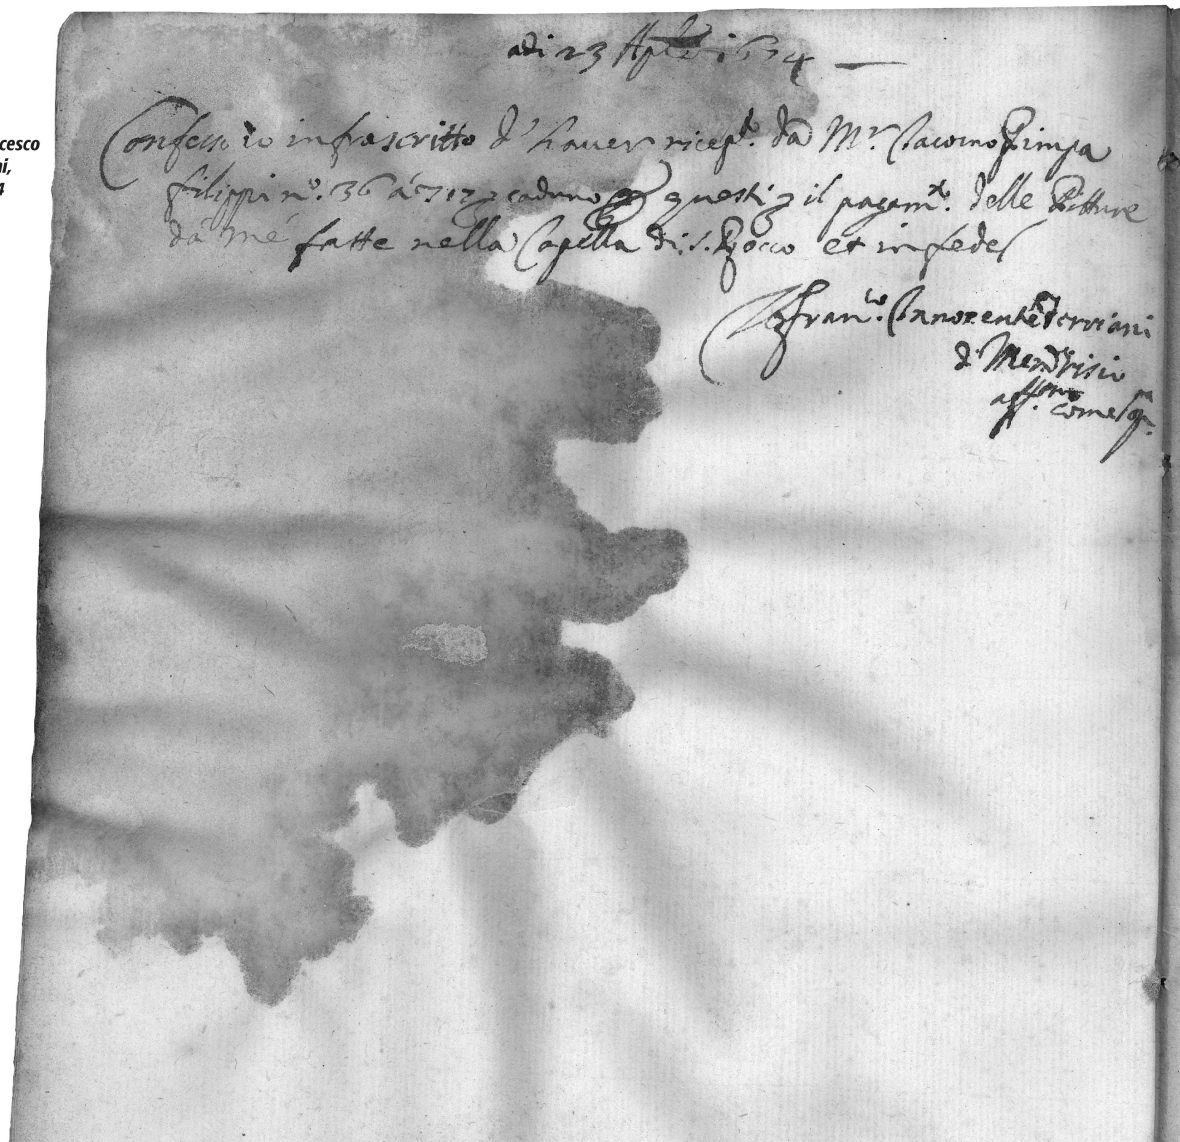 cesco
ni,
4
adi 23 1674
Confesso io infrascritto d'haver ricep.to da M.r Iacomo Pimpa
filippi n.o 36 á caduno questi p il pagam.to delle Pitture
da mé fatte nella Capella di S. Rocco et in fede
Io Fran.co Innocente Torriani
d Mendrisio
aff.mo come sop.a